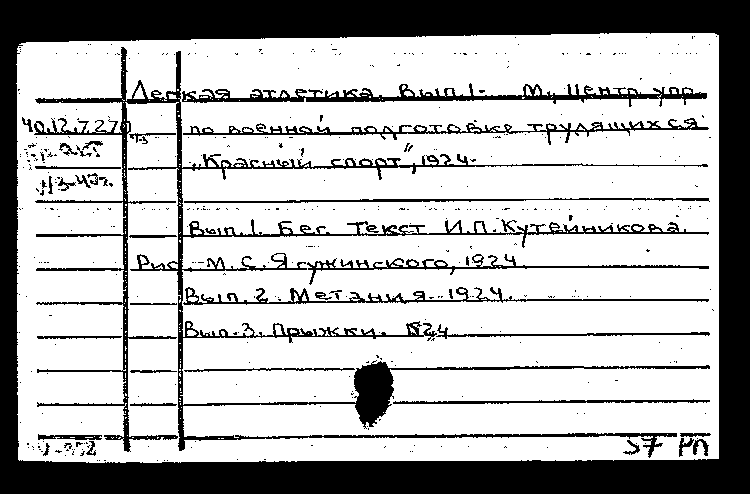 Легкая атлетика. Вып.1- М., Центр. упр.
40.12.7.270 по военной подготовке трудящихся
"Красный спорт", 1924.
Вып.1. Бег. Текст И.П.Кутейникова.
Рис. М.С.Ягужинского, 1924.
Вып.2. Метания. 1924.
Вып.3. Прыжки. 1924
57 РП